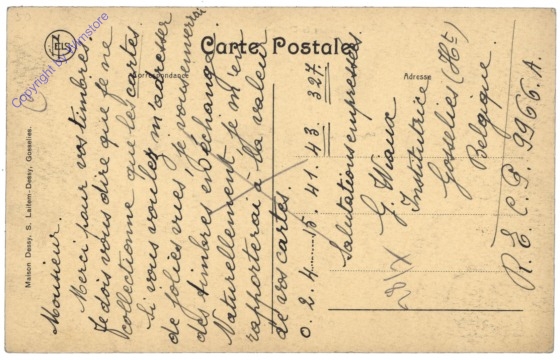 Carte Postale
Correspondance
Adresse
Maison Dessy, S. Laifem-Dessy, Gosselies.
ELS
Copyright by
Monsieur.
Merci pour vos timbres.
Je dois vous dire que je ne
collectionne que les cartes.
Si vous voulez m'adresser
de jolies vues, je vous enverrai
des timbres en échange.
Naturellement je m'en
rapporterai à la valeur
de vos cartes.
0. 2. 4. 15. 41. 43. 327.
Salutations empressées.
G. Wiaux
Institutrice
Gosselies (Ht)
Belgique.
R. E. C. P. 9966. A.